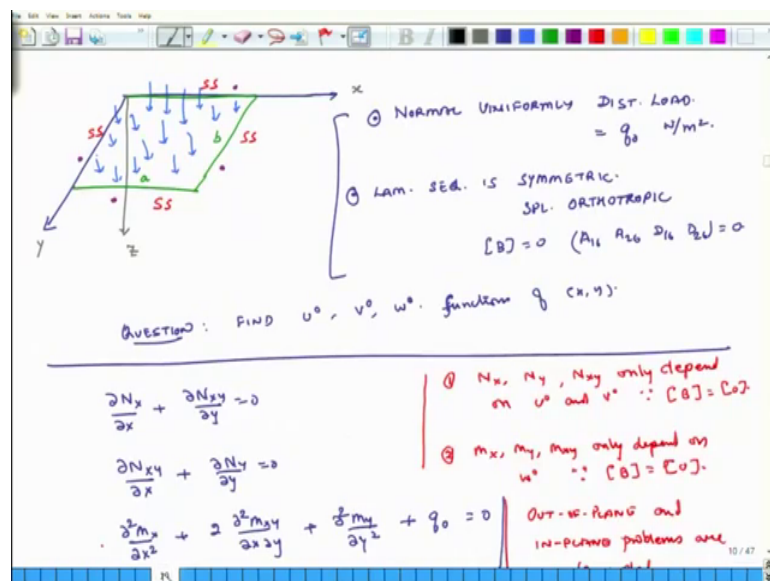 File Edit View Insert Actions Tools Help
SS
x
SS
b
SS
a
SS
y
z
① NORMAL UNIFORMLY DIST. LOAD.
= q₀ N/m².
② LAM. SEQ. IS SYMMETRIC.
SPL. ORTHOTROPIC
[B]=0 (A₁₆ A₂₆ D₁₆ D₂₆)=0
QUESTION: FIND u°, v°, w°. function of (x, y).
∂Nx/∂x + ∂Nxy/∂y = 0
∂Nxy/∂x + ∂Ny/∂y = 0
∂²Mx/∂x² + 2 ∂²Mxy/∂x∂y + ∂²My/∂y² + q₀ = 0
① Nx, Ny, Nxy only depend
on u° and v° ∵ [B]=[0].
② Mx, My, Mxy only depend on
w° ∵ [B]=[0].
OUT-OF-PLANE and
IN-PLANE problems are
10 / 47